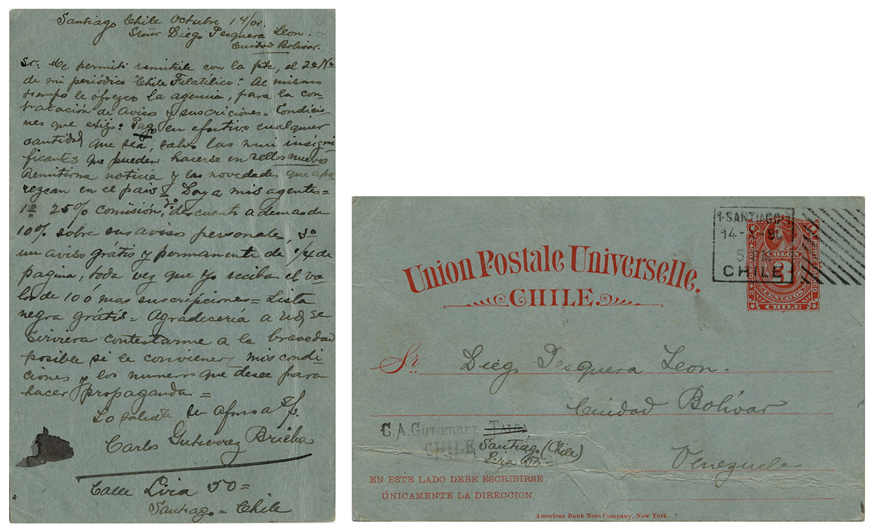 Santiago Chile Octubre 14/0
Señor Diego Pesquera Leon.
Ciudad Bolivar.
Sr: Me permiti remitirle con la pte, el 2º No
de mi periódico "Chile Filatélico". Al mismo
tiempo le ofrezco la agencia, para la con
tratación de avisos y suscriciones. Condicio
nes que exijo: Pago en efectivo cualquier
cantidad que sea, salvo las mui insigni
ficantes que pueden hacerse en sellos nuevos
Remitirme noticia y las novedades que apa
rezcan en el pais. Doy a mis agentes =
1º 25% comisión, 2º descuento ademas de
10% sobre sus avisos personale, 3º
un aviso grátis y permanente de 1/4 de
pagina, toda vez que yo reciba el va
lo de 100 mas suscripciones = Lista
negra grátis = Agradiceria a ud, se
sirviera contestarme a la brevedad
posible si le conviener mis condi
ciones y los numeros que desee para
hacer propaganda =
Lo saluda su afmo a
Carlos Gutierrez Brieba
Calle Lira 50 =
Santiago = Chile
1·SANTIAGO
14-X-
CHILE
CHILE
Union Postale Universelle.
CHILE.
Sr. Diego Pesquera Leon.
Ciudad Bolivar
C. A. GUTIERREZ, TALCA
CHILE Santiago (Chile)
Lira 50 =
Venezuela
EN ESTE LADO DEBE ESCRIBIRSE
ÚNICAMENTE LA DIRECCION.
American Bank Note Company, New York.